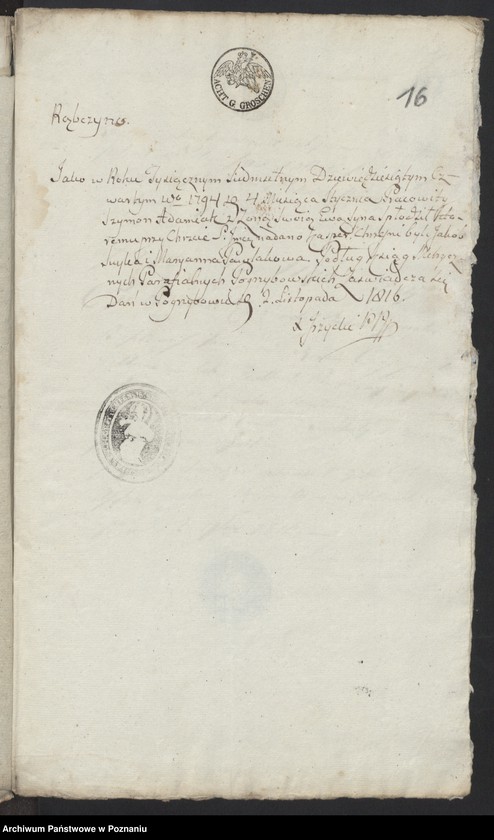 ACHT G. GROSCHEN
16
Rąbczyno.
Jako w Roku Tysiącznym Siedmsetnym Dziewiędziesiątym Cz-
wartym 1794 d. 4 Miesiąca Stycznia Pracowity
Szymon Adamiak z Żoną Swoią Ewą Syna spłodził któ-
remu przy Chrzcie S. Jmię nadano Kasper Chrzesni byli Jakob
i Maryanna Pawlakowa. Podług Xsiąg Metryc-
znych Parafialnych Pogrzybowskich Zaświadcza się
Dan w Pogrzybowie d. 2. Listopada 1816.
X
Archiwum Państwowe w Poznaniu